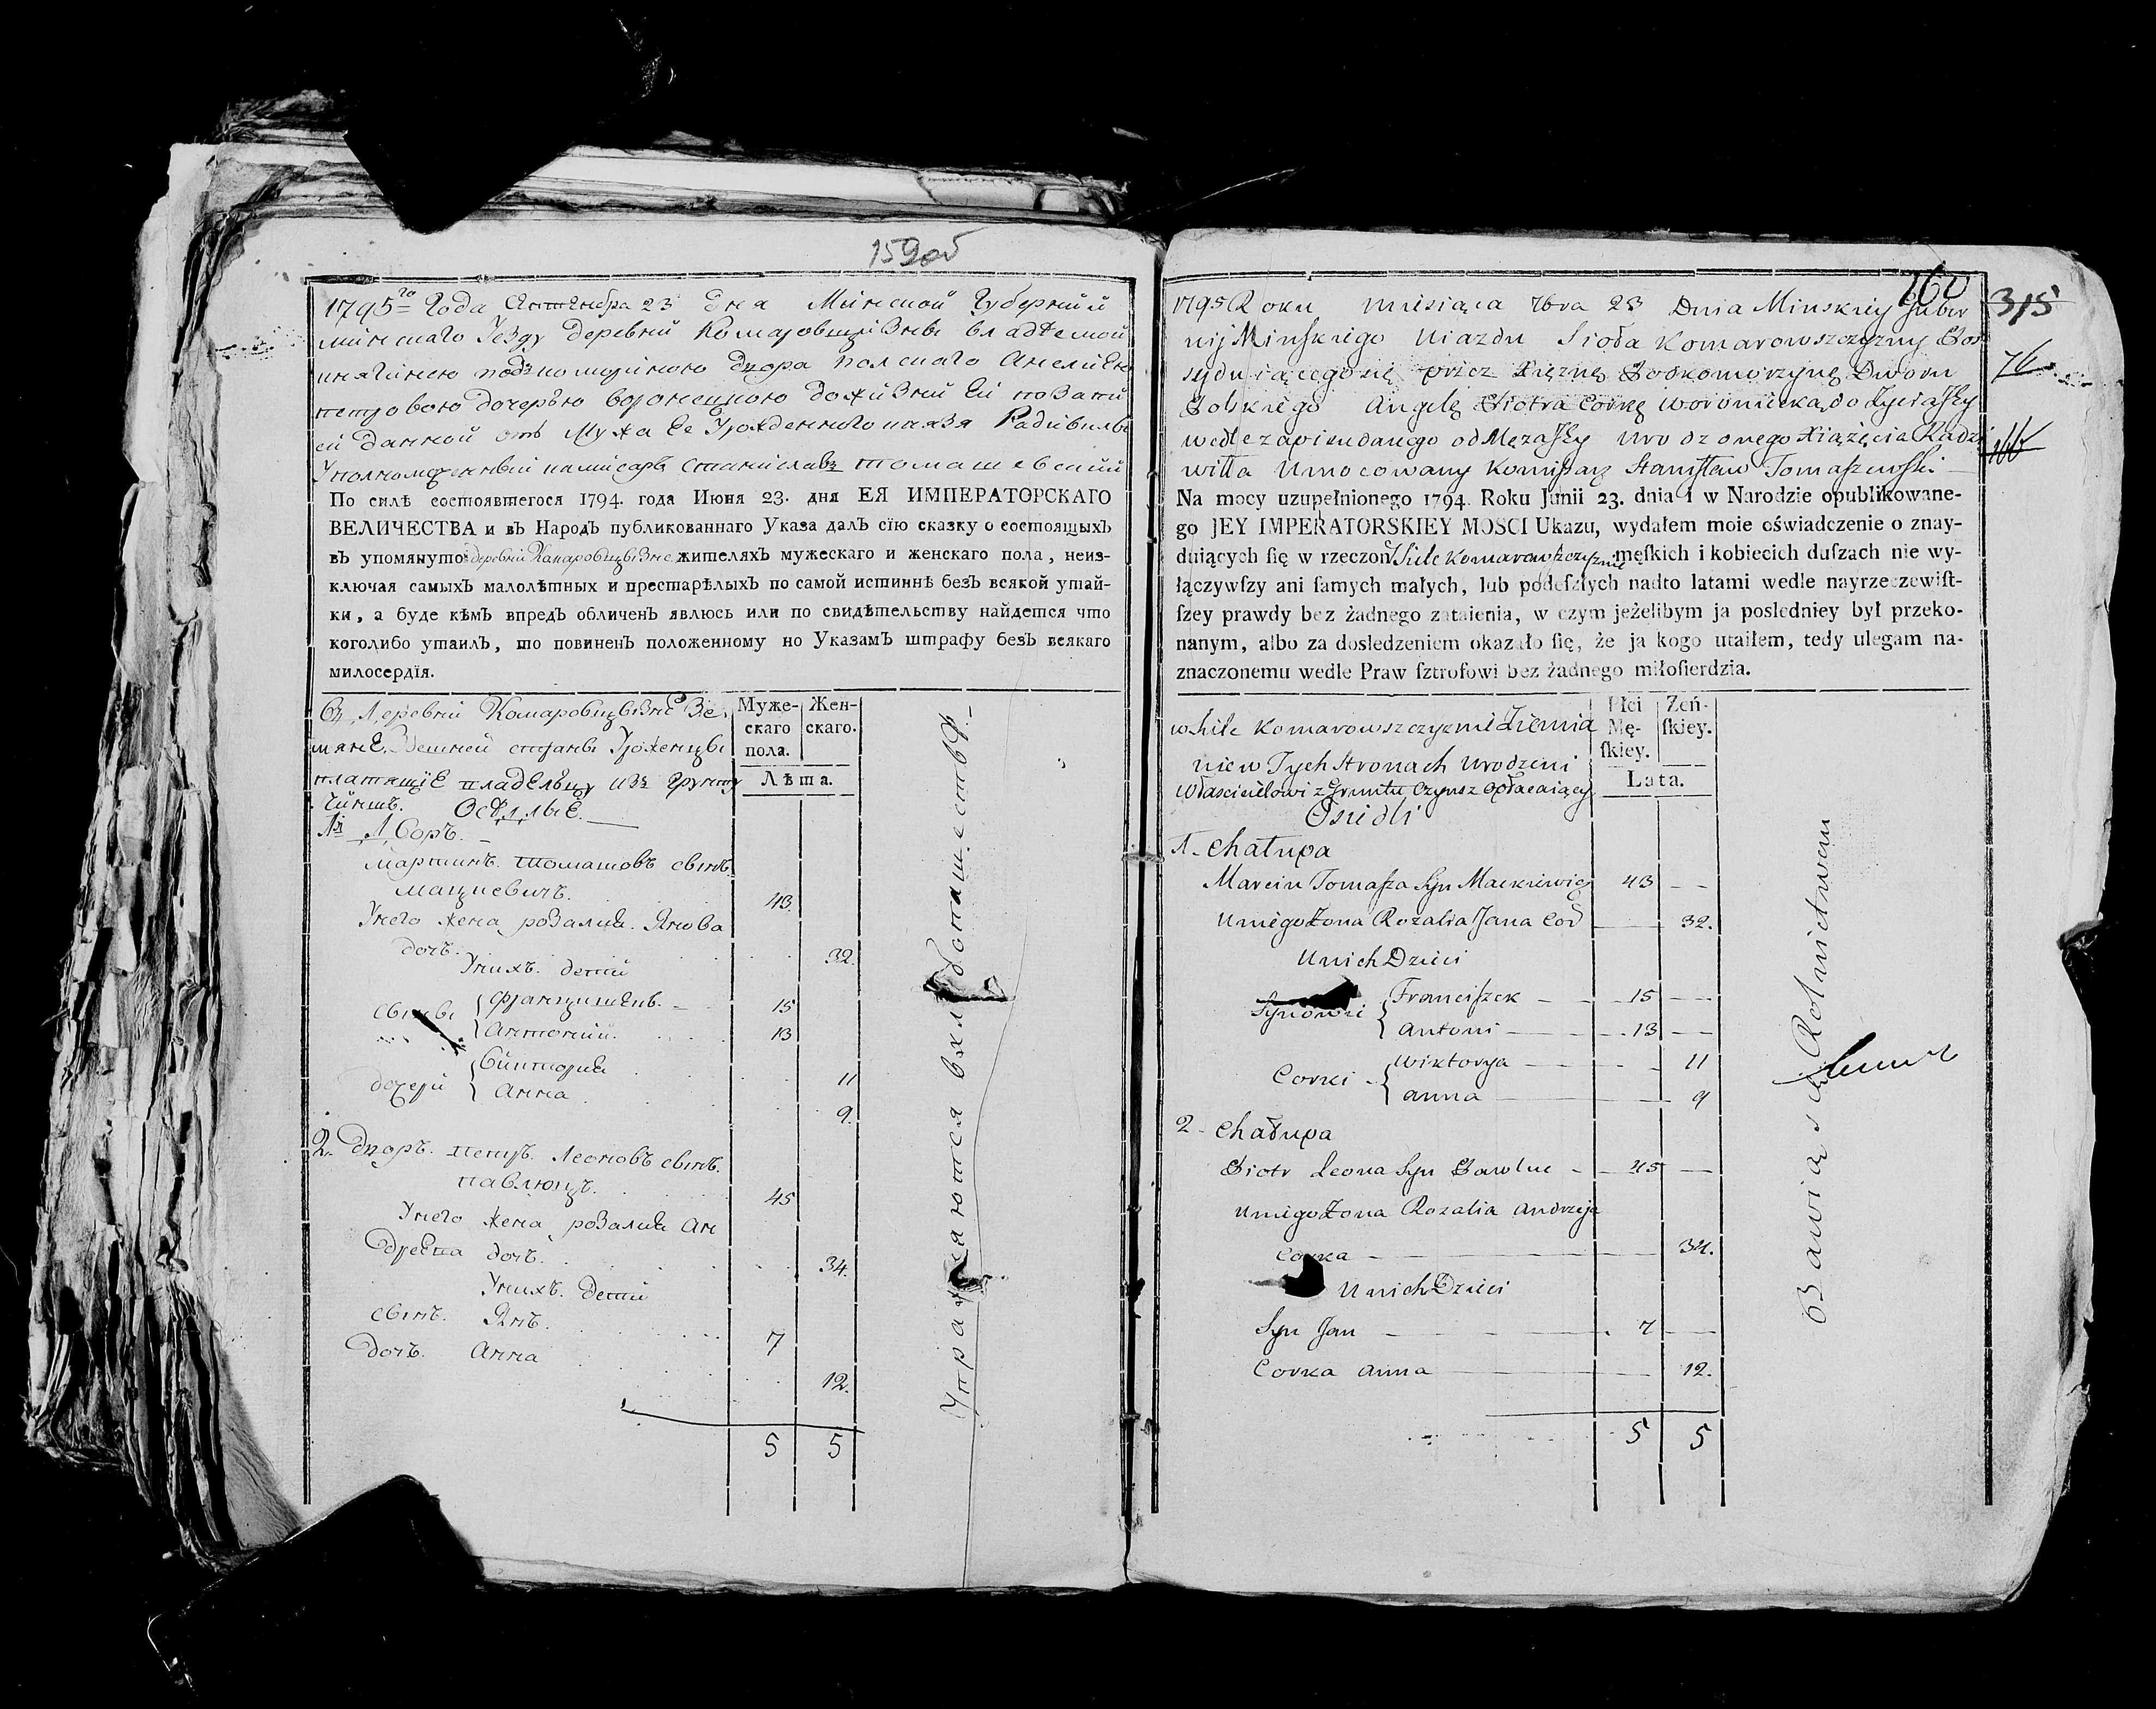 159об
1795го Года Септемbра 23 дня Минской Губернïи
минскаго уезду деревни Комаровщизны владѣемой
княгинею подъкомориною двора полскаго Анелиею
петровою дочерью воронецкою дожизни ей по запи
си данной отъ Мужа Ее Урожденного князя Радивила
Уполномоченный комисаръ Станиславъ томашевский
По силѣ состоявшегося 1794. года Июня 23. дня ЕЯ ИМПЕРАТОРСКАГО
ВЕЛИЧЕСТВА и въ Народъ публикованнаго Указа далъ сïю сказку о состоящыхъ
въ упомянутой деревни Комаровщизне жителяхъ мужескаго и женскаго пола, неиз-
ключая самыхъ малолѣтных и престарѣлыхъ по самой истиннѣ безъ всякой утай-
ки, а буде кѣмъ впредъ обличенъ явлюсь или по свидѣтельству найдется что
коголибо утаилъ, то повиненъ положенному но Указамъ штрафу безъ всякаго
милосердïя.
Въ Деревни Комаровщызне Зе
мяне Здешней страны Уроженцы
платящïе владельцу изъ грунту
Чиншъ. Оседлые.
Муже-
скаго
пола.
Жен-
скаго.
Лѣта.
№ 1 Дворъ.
мартинъ. томашовъ сынъ
мацкевичъ. 43.
Унего жена розалия. Янова
дочь. 32.
Унихъ. дети
сыны { францишекъ. 15
Антоний. 13
дочери { Виктория 11
Анна 9.
2. Дворъ. петръ. Леоновъ сынъ.
павлюць. 45
Унего жена розалия Ан
дреева дочь. 34.
Унихъ. дети
сынъ. Янъ. 7
дочь. Анна 12.
5 5
Упражняются в хлебопашестве.
160
315
76
1795 Roku miesiąca 7bra 23 Dnia Minskiey Guber
nij Minskiego Uiazdu Sioła Komarowszczyzny Pos
syduiącegosię przez Xiężnę Podkomorzynę Dworu
Polskiego Angelę Piotra Corkę Woroniecką do Zycia Jey
wedle zapisu danego od Męża Jey Urodzonego Xiążęcia Radzi
wiłła Umocowany Komissarz Stanisław Tomaszewski
Na mocy uzupełnionego 1794. Roku Junii 23. dnia i w Narodzie opublikowane-
go JEY IMPERATORSKIEY MOSCI Ukazu, wydałem moie oświadczenie o znay-
duiących się w rzeczon Siele Komarowszczyznie męskich i kobiecich duszach nie wy-
łączywszy ani samych małych, lub podeszłych nadto latami wedle nayrzeczewist-
szey prawdy bez żadnego zataienia, w czym jeżelibym ja posledniey był przeko-
nanym, albo za dosledzeniem okazało się, że ja kogo utaiłem, tedy ulegam na-
znaczonemu wedle Praw sztrofowi bez żadnego miłosierdzia.
w Siele Komarowszczyznie Ziemia
nie w Tych Stronach Urodzeni
Włascicielowi z Gruntu Czynsz opłacaiący
Osiedli
Płci
Mę-
skiey.
Zeń-
skiey.
Lata.
1. Chałupa
Marcin Tomasza Syn Mackiewicz 43
U niego Zona Rozalia Jana Cor 32.
U nich Dzieci
Synowie { Franciszek 15
Antoni 13
Corki { Wiktorya 11
Anna 9
2. Chałupa
Piotr Leona Syn Pawluc 45
U niego Zona Rozalia Andrzeja
Corka 34.
U nich Dzieci
Syn Jan 7
Corka Anna 12.
5 5
Bawią się Rolnictwem